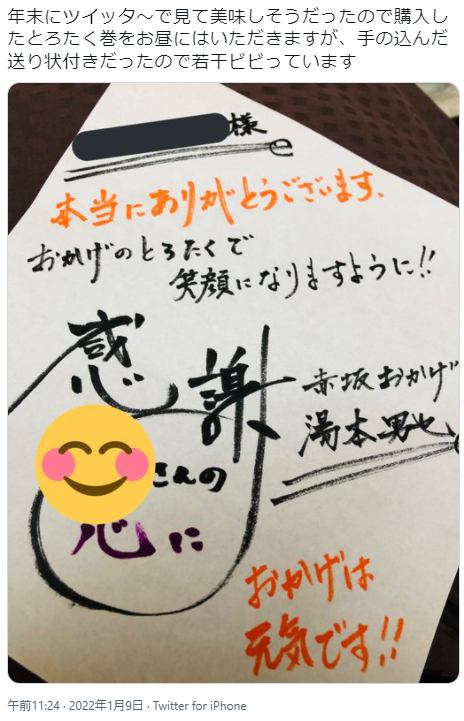 年末にツイッタ～で見て美味しそうだったので購入し
たとろたく巻をお昼にはいただきますが、手の込んだ
送り状付きだったので若干ビビっています
様
本当にありがとうございます、
おかげのとろたくで
笑顔になりますように!!
感謝
赤坂おかげ
湯本
さんの
心に
おかげは
元気です!!
午前11:24 · 2022年1月9日 · Twitter for iPhone